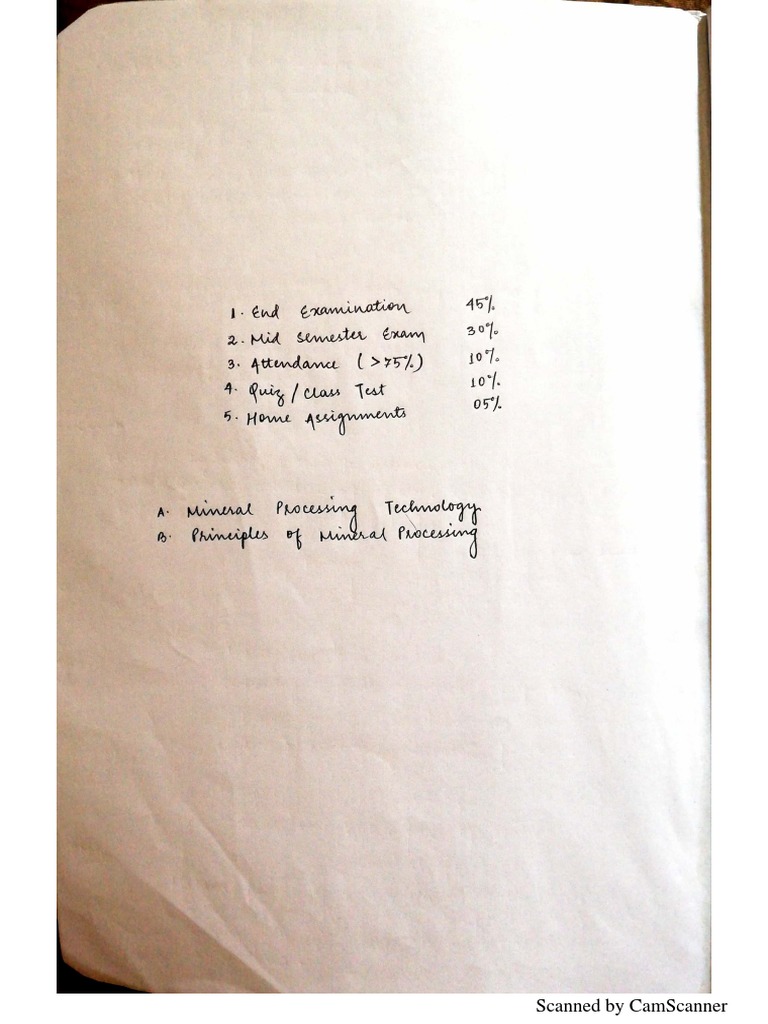 1. End Examination 45%
2. Mid Semester Exam 30%
3. Attendance (>75%) 10%
4. Quiz/Class Test 10%
5. Home Assignments 05%
A. Mineral Processing Technology
B. Principles of Mineral Processing
Scanned by CamScanner